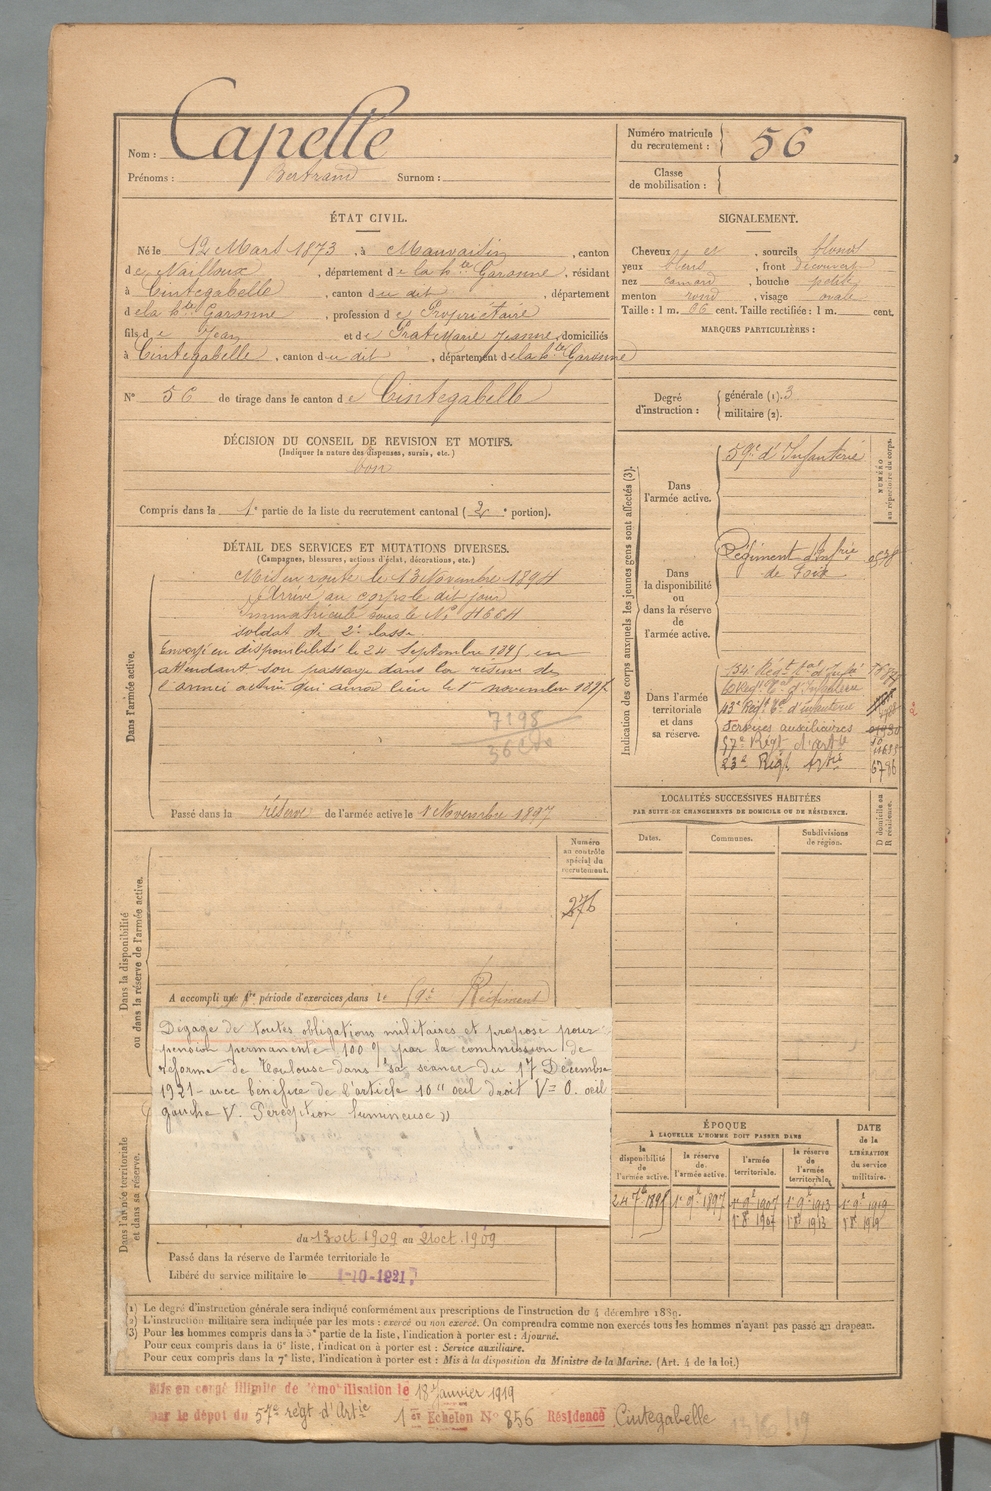 Nom : Capelle
Prénoms : Bertrand Surnom :
Numéro matricule du recrutement : 56
Classe de mobilisation :
ÉTAT CIVIL.
Né le 12 Mars 1873, à Mauvaisin, canton
de Nailloux, département de la Hte Garonne, résidant
à Cintegabelle, canton du dit, département
de la Hte Garonne, profession de Propriétaire
fils de Jean et de Prat Marie Jeanne, domiciliés
à Cintegabelle, canton du dit, département de la Hte Garonne
N° 56 de tirage dans le canton de Cintegabelle
SIGNALEMENT.
Cheveux et, sourcils blond
yeux bleus, front découvert
nez camard, bouche petite
menton rond, visage ovale
Taille : 1 m. 66 cent. Taille rectifiée : 1 m. cent.
MARQUES PARTICULIÈRES :
Degré d'instruction : générale (1). 3
militaire (2).
DÉCISION DU CONSEIL DE REVISION ET MOTIFS.
(Indiquer la nature des dispenses, sursis, etc.)
bon
Compris dans la 1e partie de la liste du recrutement cantonal (2e portion).
DÉTAIL DES SERVICES ET MUTATIONS DIVERSES.
(Campagnes, blessures, actions d'éclat, décorations, etc.)
Dans l'armée active.
Mis en route le 13 Novembre 1894
Arrivé au corps le dit jour
Immatriculé sous le N° 4664
soldat de 2e classe
Envoyé en disponibilité le 24 Septembre 1895 en
attendant son passage dans la réserve de
l'armée active qui aura lieu le 1er novembre 1897
7195
Passé dans la réserve de l'armée active le 1 Novembre 1897
Indication des corps auxquels les jeunes gens sont affectés (3).
NUMÉRO au répertoire du corps.
Dans l'armée active.
59e d'Infanterie
Dans la disponibilité ou dans la réserve de l'armée active.
Régiment d'Infrie
de Foix
Dans l'armée territoriale et dans sa réserve.
134e Régt tal d'Infie
43e Régt tal d'infanterie
Services auxiliaires
57e Régt d'Artie
23e Régt Artie 6796
LOCALITÉS SUCCESSIVES HABITÉES
PAR SUITE DE CHANGEMENTS DE DOMICILE OU DE RÉSIDENCE.
Dates. Communes. Subdivisions de région. D domicile ou R résidence.
Dans la disponibilité ou dans la réserve de l'armée active.
Numéro au contrôle spécial du recrutement.
276
A accompli une 1re période d'exercices dans le 59e Régiment
Dégagé de toutes obligations militaires et proposé pour
pension permanente 100 % par la commission de
réforme de Toulouse dans sa séance du 17 Décembre
1921 avec bénéfice de l'article 10 "œil droit V = 0. œil
gauche V. Perception lumineuse"
Dans l'armée territoriale et dans sa réserve.
du 13 oct 1909 au 21 oct 1909
Passé dans la réserve de l'armée territoriale le
Libéré du service militaire le 1-10-1921
ÉPOQUE
À LAQUELLE L'HOMME DOIT PASSER DANS
la disponibilité de l'armée active. la réserve de l'armée active. l'armée territoriale. la réserve de l'armée territoriale. DATE de la LIBÉRATION du service militaire.
24 7bre 1895 1er 9e 1897 1er 9e 1907 1er 9e 1913 1er 9e 1919
1er 8e 1907 1er 8e 1913 1er 8e 1919
(1) Le degré d'instruction générale sera indiqué conformément aux prescriptions de l'instruction du 4 décembre 1889.
(2) L'instruction militaire sera indiquée par les mots : exercé ou non exercé. On comprendra comme non exercés tous les hommes n'ayant pas passé au drapeau.
(3) Pour les hommes compris dans la 5e partie de la liste, l'indication à porter est : Ajourné.
Pour ceux compris dans la 6e liste, l'indication à porter est : Service auxiliaire.
Pour ceux compris dans la 7e liste, l'indication à porter est : Mis à la disposition du Ministre de la Marine. (Art. 4 de la loi.)
Mis en congé illimité de démobilisation le 18 Janvier 1919
par le dépôt du 57e régt d'Artie 1er Echelon N° 856 Résidence Cintegabelle